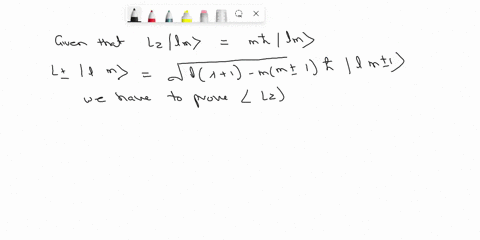 Given that Lz |lm> = mħ |lm>
L± |l m> = √l(l+1) - m(m±1) ħ |l m±1>
we have to prove <Lz>